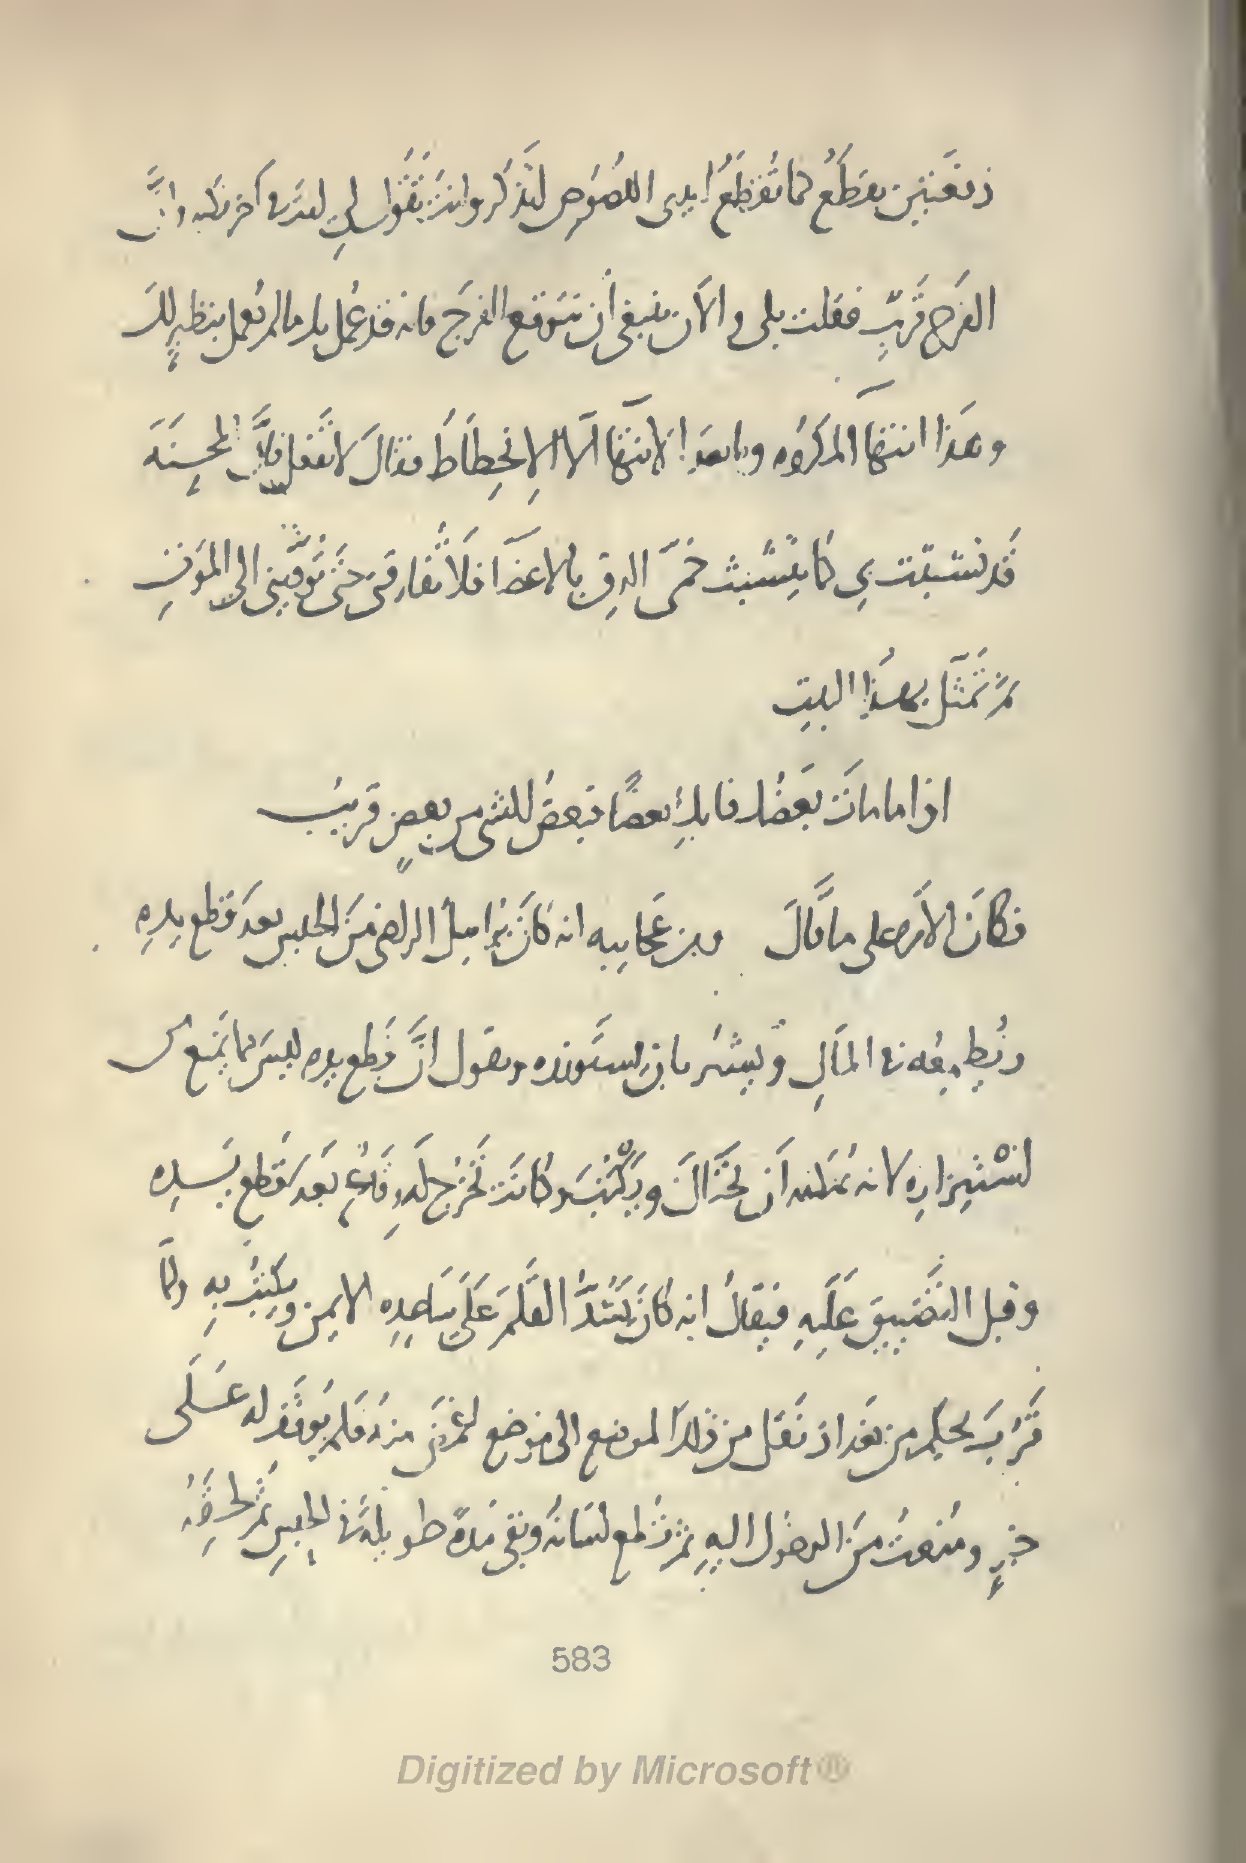 دفعتين تقطع كما تقطع ايدى اللصوص ليذكر وانت تقول لي انت في آخر نكبة وانّ
الفرج قريب فقلت بلى و الآن ينبغي أن تتوقع الفرج فانه قد عُمل بك ما لم يُعمل بنظير لك
وهذا انتهآ المكروه وما بعد الانتهآ الا الانحطاط فقال لا تفعل فانّ المحنة
قد تشبّثت بي كما يتشبّث حمّى الدق بالاعضآ فلا تفارقني حتّى تؤدّيني الى الموت
ثم تمثّل بهذا البيت
اذا ما مات بعضُك فابكِ بعضًا فبعضُ الشي من بعضٍ قريبُ
فكان الأمر على ما قال ومن عجايبه انه كان يراسل الراضي من الحبس بعد قطع يده
ويُطمعه في المال ويشير بان يستوزره ويقول انّ قطع يده ليس مما يمنع من
استيزاره لانه يمكنه أن يحتال ويكتب وكانت تخرج له رقاع بعد قطع يده
وقبل التضييق عليه فيقالُ انه كان يشدّ القلم على ساعده الايمن ويكتبُ به ولمّا
قرب بجكم من بغداذ نقل من ذلك الموضع الى موضع اغمض منه فلم يوقف له على
خبرٍ ومُنعتُ من الدخول اليه ثم قطع لسانه وبقي مدّة طويلة في الحبس ثم لحقه
583
Digitized by Microsoft®